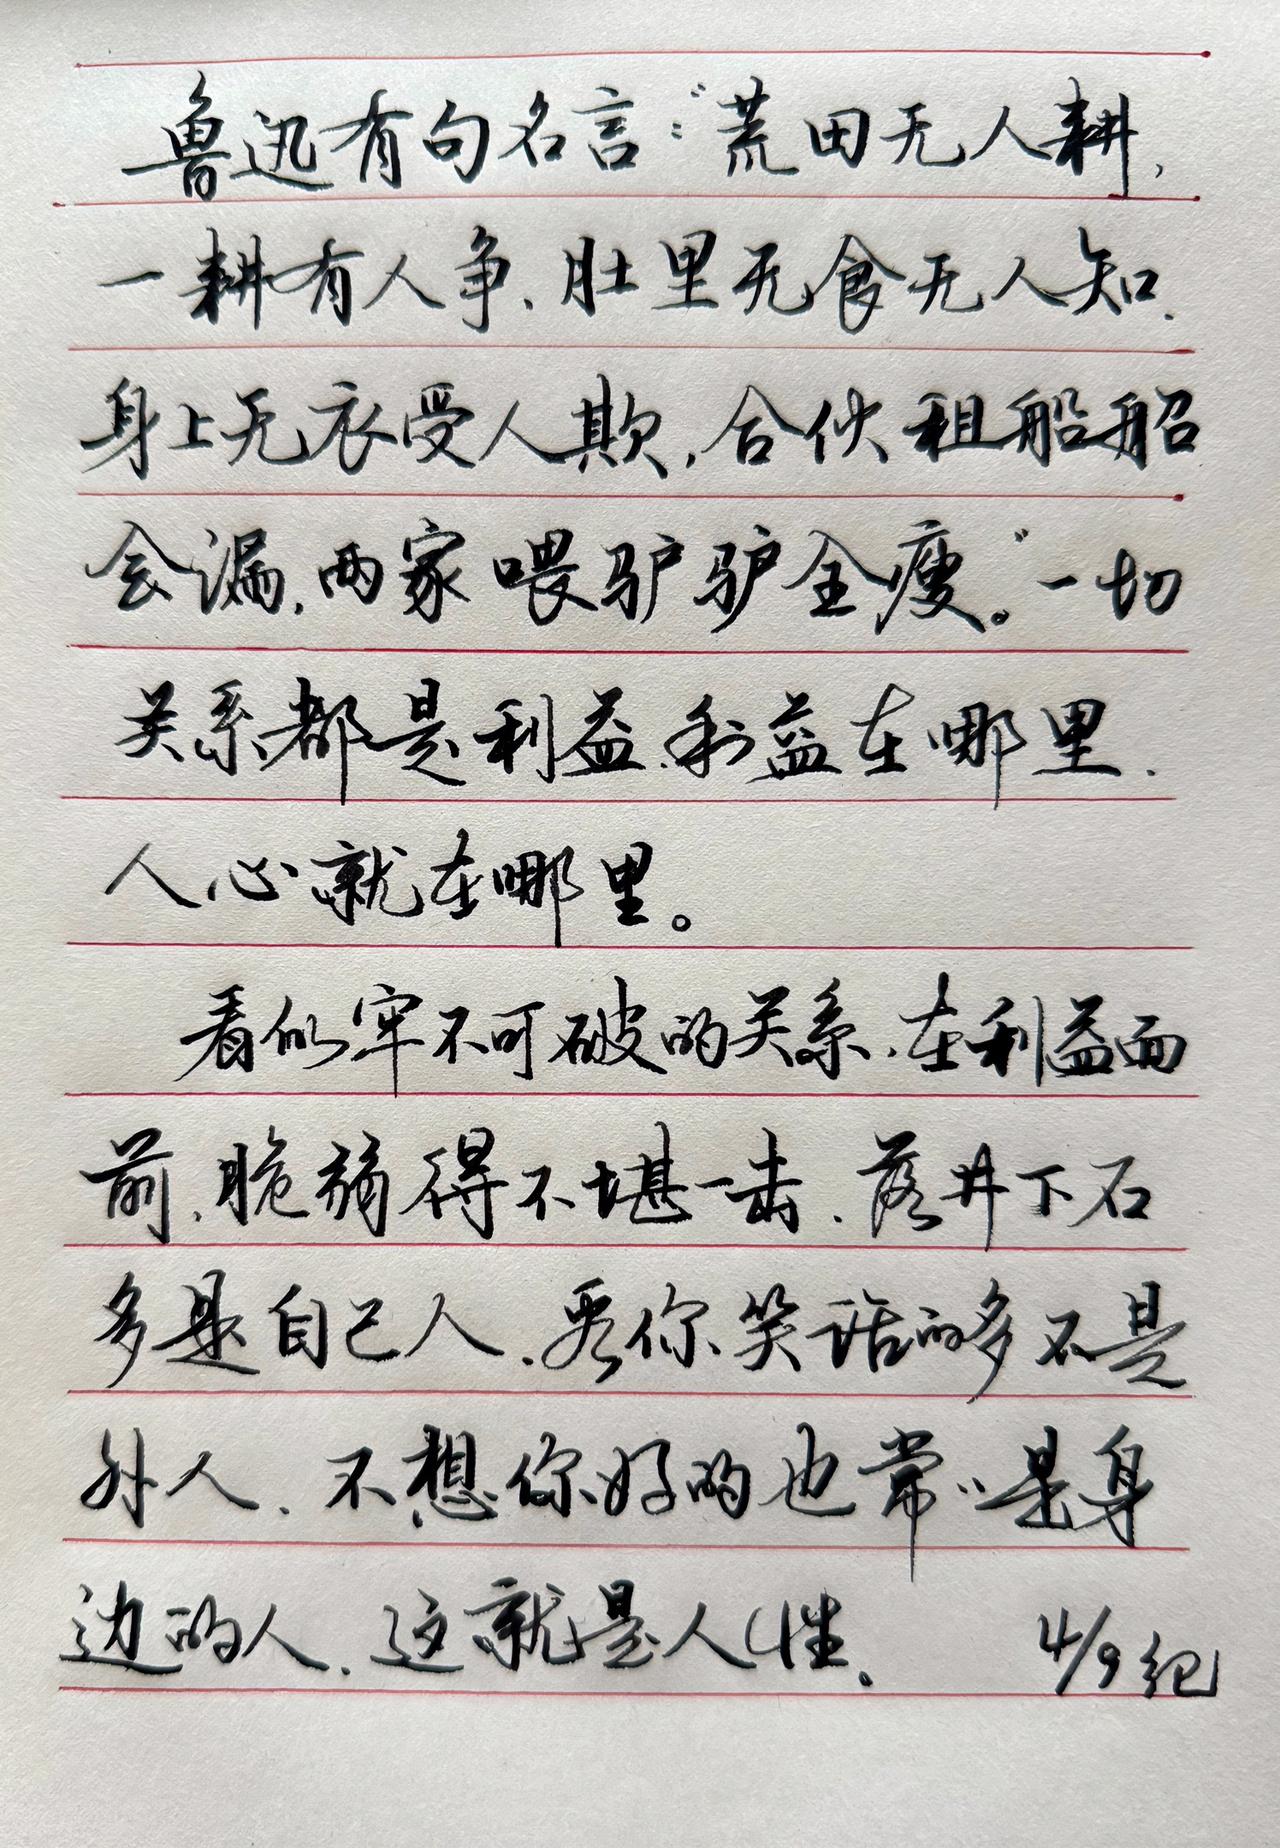 鲁迅有句名言:“荒田无人耕,
一耕有人争、肚里无食无人知.
身上无衣受人欺,合伙租船船
会漏,两家喂驴驴全瘦。”一切
关系都是利益.利益在哪里.
人心就在哪里。
看似牢不可破的关系、在利益面
前、脆弱得不堪一击、落井下石
多是自己人、看你笑话的多不是
外人、不想你好的也常常是身
边的人、这就是人性。 4/9纪